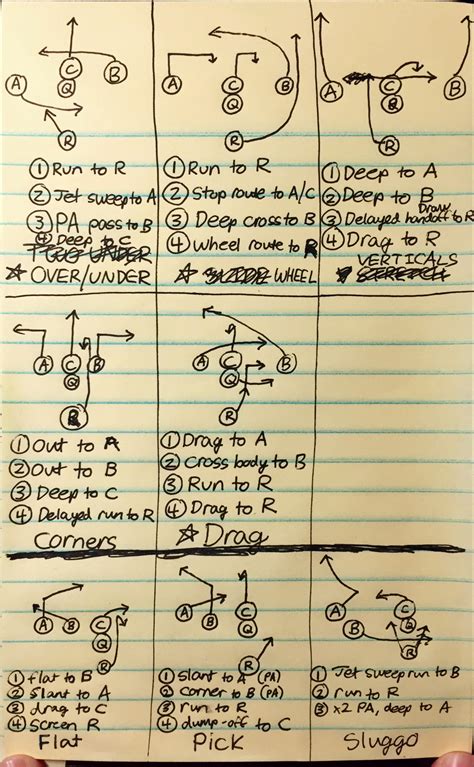 A
C
Q
B
R
① Run to R
② Jet sweep to A
③ PA pass to B
④ Deep to C
☆ OVER/UNDER
A
C
Q
B
R
① Run to R
② Stop route to A/C
③ Deep cross to B
④ Wheel route to R
☆ WHEEL
A
C
Q
B
R
① Deep to A
② Deep to B
Draw
③ Delayed handoff to R
④ Drag to R
VERTICALS
STRETCH
A
C
B
Q
R
① Out to A
② Out to B
③ Deep to C
④ Delayed run to R
Corners
A
C
B
Q
R
① Drag to A
② Cross body to B
③ Run to R
④ Drag to R
☆ Drag
A
B
C
Q
R
① flat to B
② slant to A
③ drag to C
④ Screen R
Flat
A
B
C
Q
R
① slant to A (PA)
② corner to B (PA)
③ run to R
④ dump-off to C
Pick
A
B
C
Q
R
① Jet sweep run to B
② run to R
③ x2 PA, deep to A
Sluggo